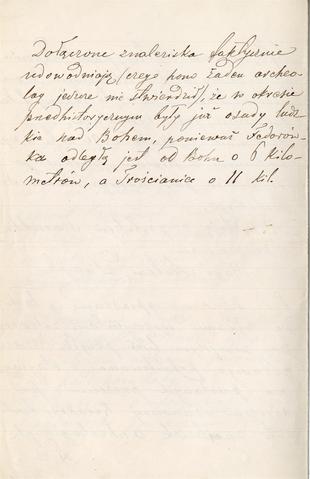 Dołączone znaleziska faktycznie
udowodniają (czego pono żaden archeo-
log jeszcze nie stwierdził), że w okresie
przedhistorycznym były już osady ludz-
kie nad Bohem, ponieważ Fedorów-
ka odległą jest od Bohu o 6 kilo-
metrów, a Trościaniec o 11 kil.